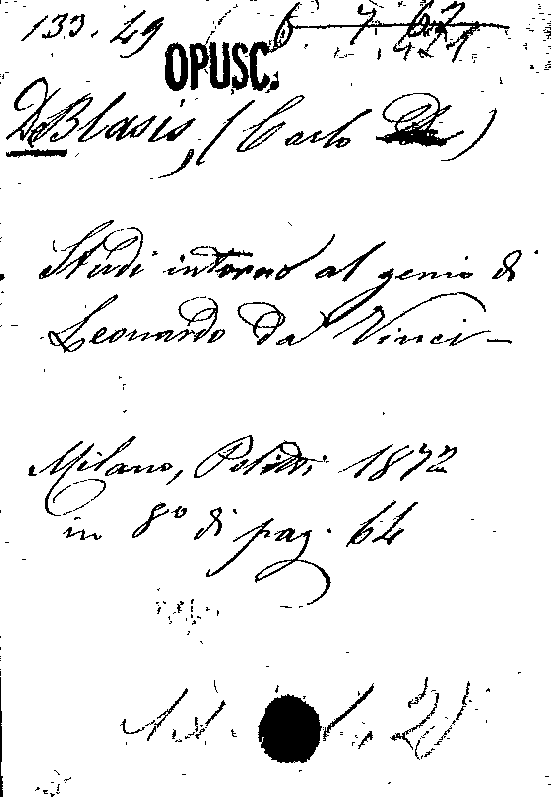 133. 49
OPUSC.
De Blasis, (Carlo
Studi intorno al genio di
Leonardo da Vinci —
Milano, Politti 1872
in 8º di pag. 64